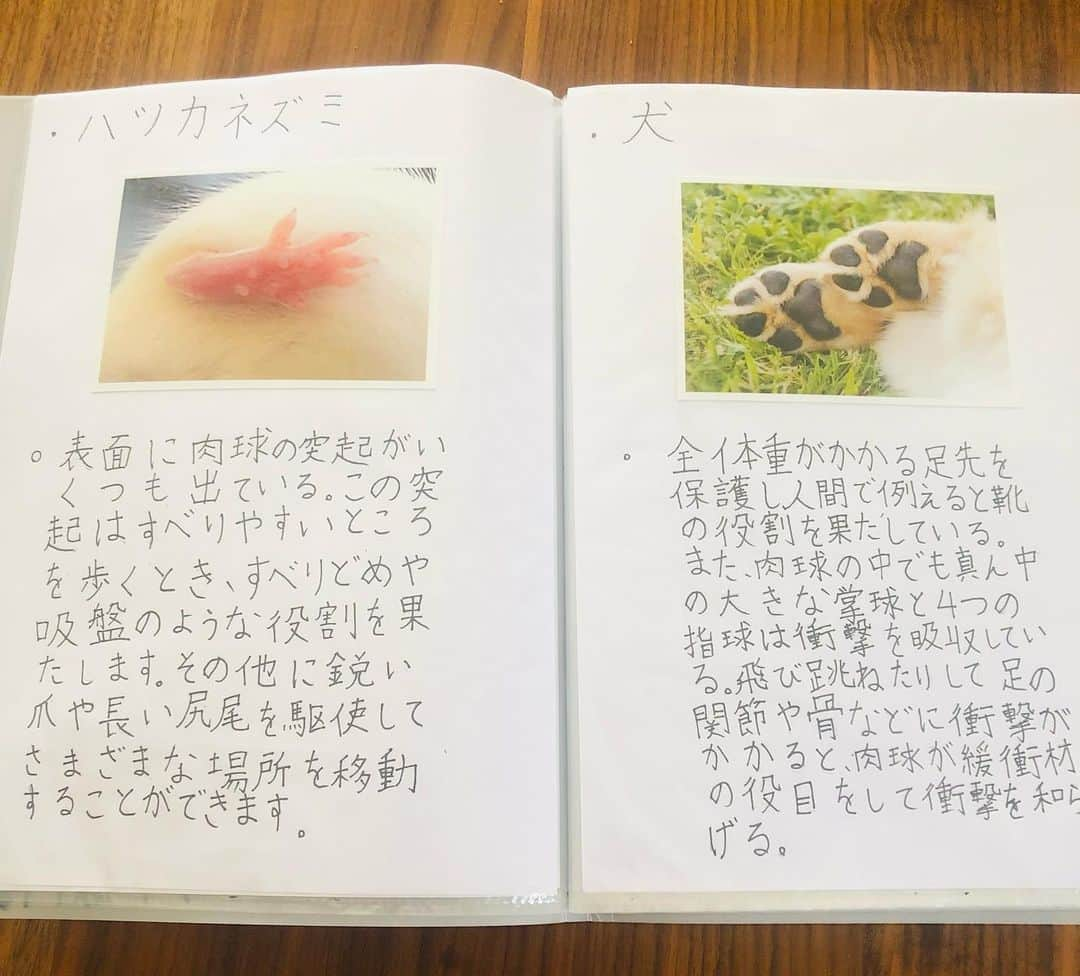 ・ハツカネズミ
○表面に肉球の突起がい
くつも出ている。この突
起はすべりやすいところ
を歩くとき、すべりどめや
吸盤のような役割を果
たします。その他に鋭い
爪や長い尻尾を駆使して
さまざまな場所を移動
することができます。
・犬
。全体重がかかる足先を
保護し人間で例えると靴
の役割を果だしている。
また、肉球の中でも真ん中
の大きな掌球と4つの
指球は衝撃を吸収してい
る。飛び跳ねたりして足の
関節や骨などに衝撃が
かかると、肉球が緩衝材
の役目をして衝撃を和ら
げる。